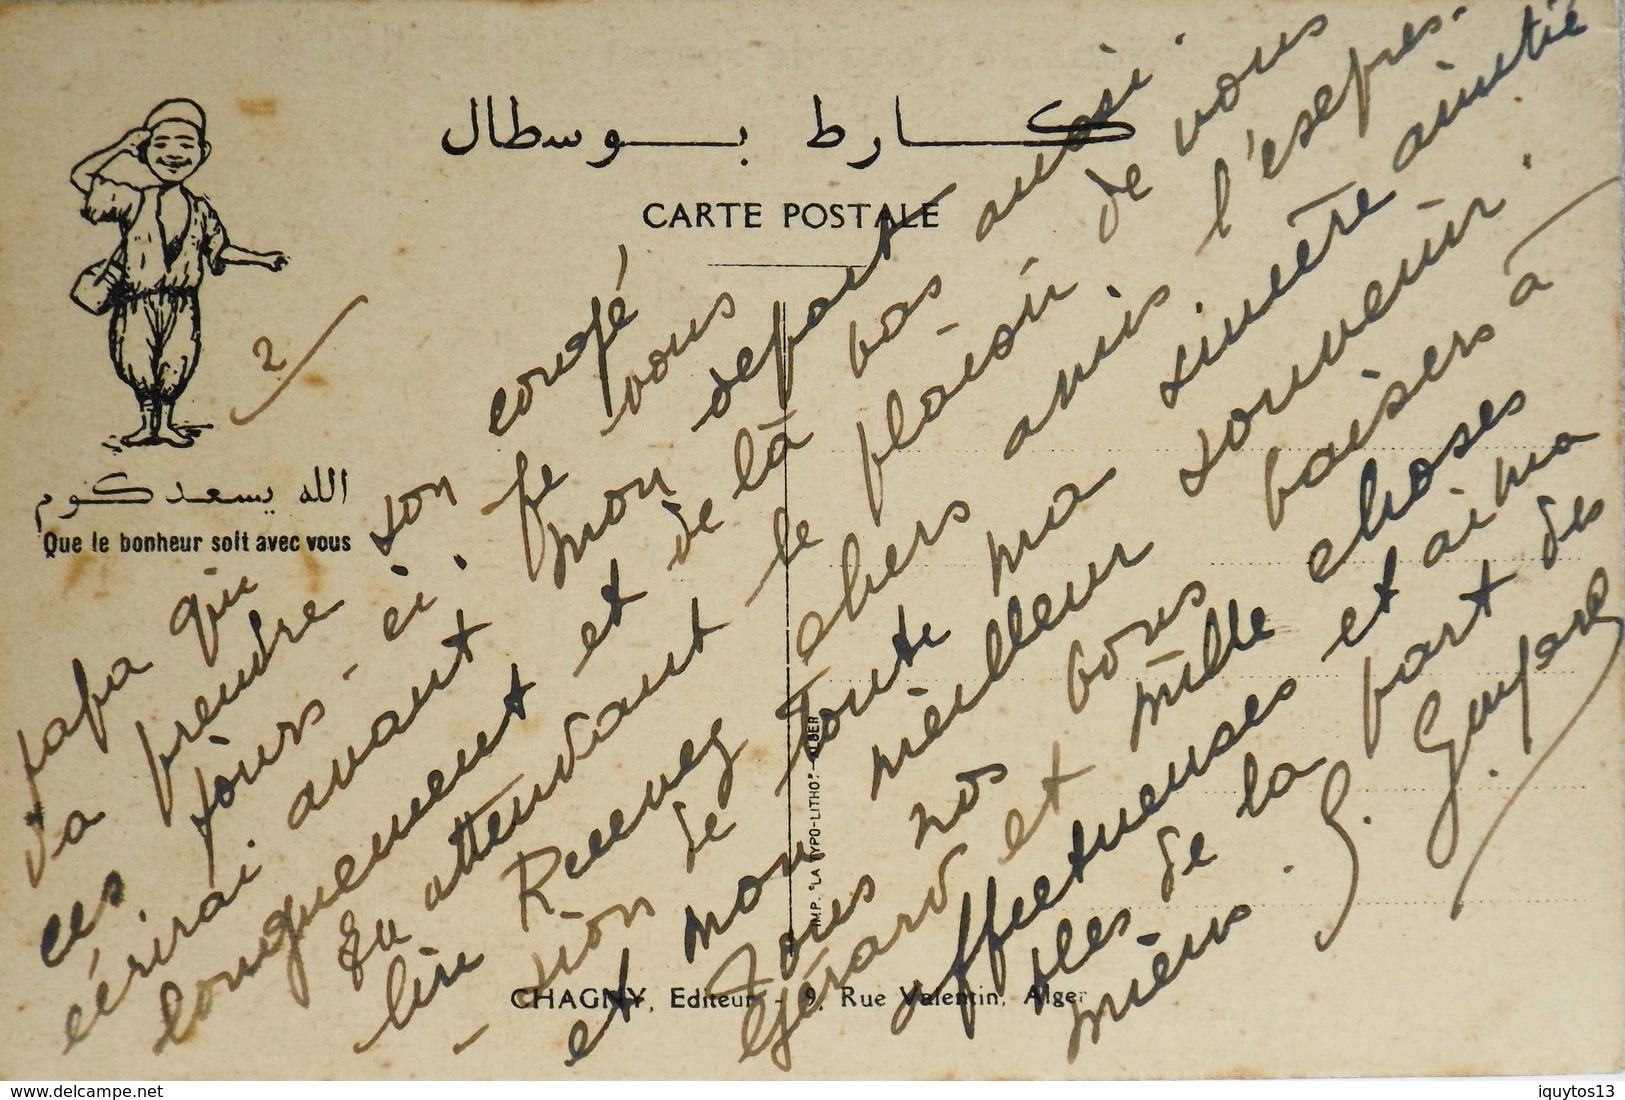 كارط بوسطال
CARTE POSTALE
الله يسعدكوم
Que le bonheur soit avec vous
2
papa qui son congé
va prendre ces jours-ci. je vous
écrirai avant mon départ
longuement et de là bas aussi.
En attendant le plaisir de vous
lire Recevez chers amis l'espres-
-sion de toute ma sincère amitié
et mon meilleur souvenir.
Tous nos bons baisers à
Gérard et mille choses
affectueuses et aima
bles de la part des
miens. G.
IMP. "LA TYPO-LITHO" - ALGER
CHAGNY, Editeur - 9, Rue Valentin, Alger
iquytos13